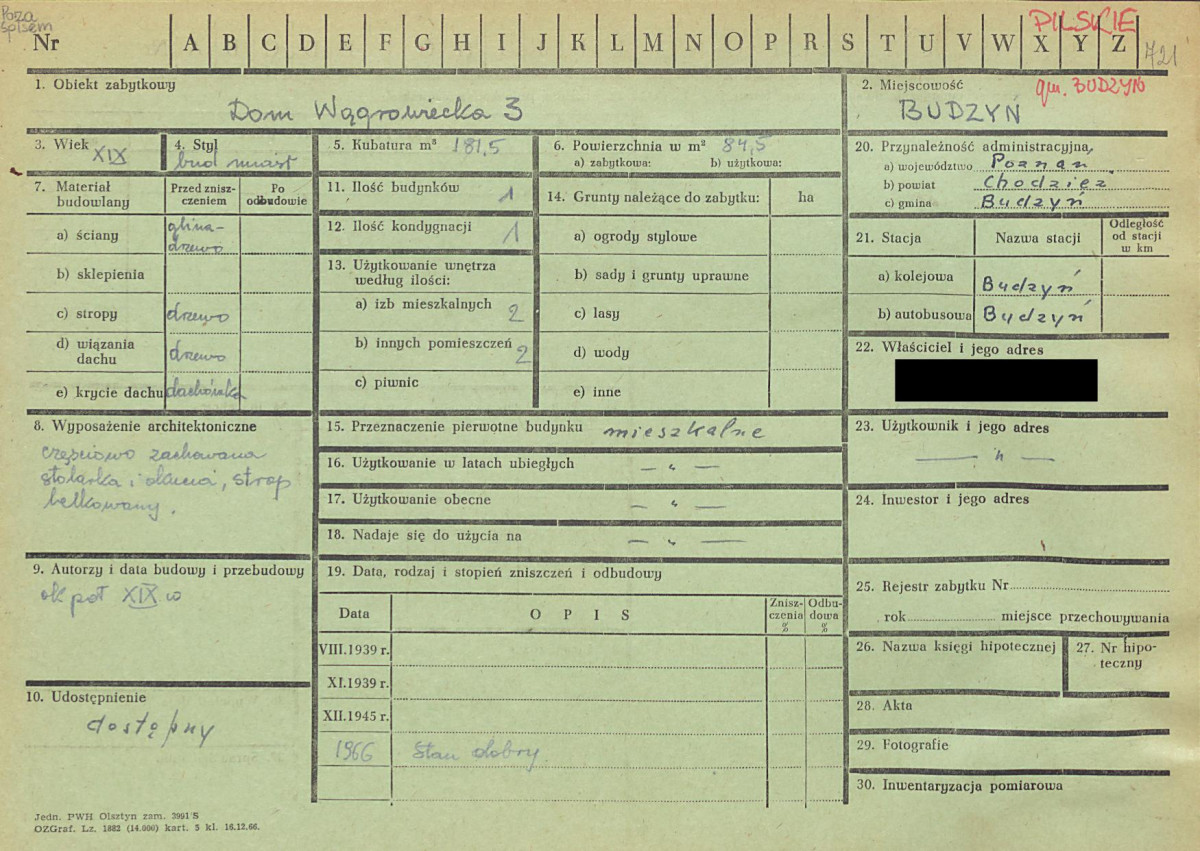 Poza
spisem
Nr A B C D E F G H I J K L M N O P R S T U V W X Y Z
PILSKIE
721
1. Obiekt zabytkowy
Dom Wągrowiecka 3
2. Miejscowość
gm. BUDZYŃ
BUDZYŃ
3. Wiek XIX
4. Styl
bud miast
5. Kubatura m³ 181,5
6. Powierzchnia w m² 84,5
a) zabytkowa: b) użytkowa:
7. Materiał budowlany
Przed zniszczeniem
Po odbudowie
a) ściany
glina-
drzewo
b) sklepienia
c) stropy drzewo
d) wiązania dachu drzewo
e) krycie dachu dachówka
8. Wyposażenie architektoniczne
częściowo zachowana
stolarka i okucia, strop
belkowany.
9. Autorzy i data budowy i przebudowy
ok poł XIX w
10. Udostępnienie
dostępny
11. Ilość budynków 1
12. Ilość kondygnacji 1
13. Użytkowanie wnętrza
według ilości:
a) izb mieszkalnych 2
b) innych pomieszczeń 2
c) piwnic
14. Grunty należące do zabytku: ha
a) ogrody stylowe
b) sady i grunty uprawne
c) lasy
d) wody
e) inne
15. Przeznaczenie pierwotne budynku mieszkalne
16. Użytkowanie w latach ubiegłych — „ —
17. Użytkowanie obecne — „ —
18. Nadaje się do użycia na — „ —
19. Data, rodzaj i stopień zniszczeń i odbudowy
Data OPIS Zniszczenia % Odbudowa %
VIII.1939 r.
XI.1939 r.
XII.1945 r.
1966 Stan dobry.
20. Przynależność administracyjna
a) województwo Poznań
b) powiat Chodzież
c) gmina Budzyń
21. Stacja Nazwa stacji Odległość od stacji w km
a) kolejowa Budzyń
b) autobusowa Budzyń
22. Właściciel i jego adres
23. Użytkownik i jego adres
— „ —
24. Inwestor i jego adres
25. Rejestr zabytku Nr
rok miejsce przechowywania
26. Nazwa księgi hipotecznej
27. Nr hipoteczny
28. Akta
29. Fotografie
30. Inwentaryzacja pomiarowa
Jedn. PWH Olsztyn zam. 3991 S
OZGraf. Lz. 1882 (14.000) kart. 3 kl. 16.12.66.